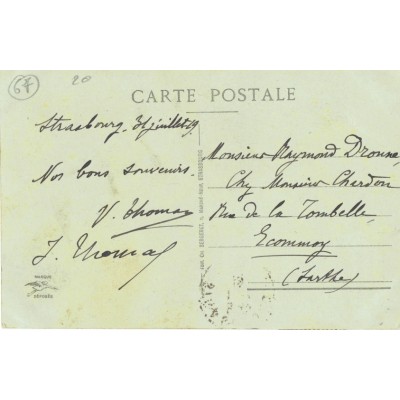 6F
20
CARTE POSTALE
Strasbourg. 31 juillet 19
Nos bons souvenirs.
V. Thomas
J. Thomas
MARQUE
DÉPOSÉE
Monsieur Raymond Dronne,
Chez Monsieur Chardon
Rue de la Tombelle
Ecommoy
(Sarthe)